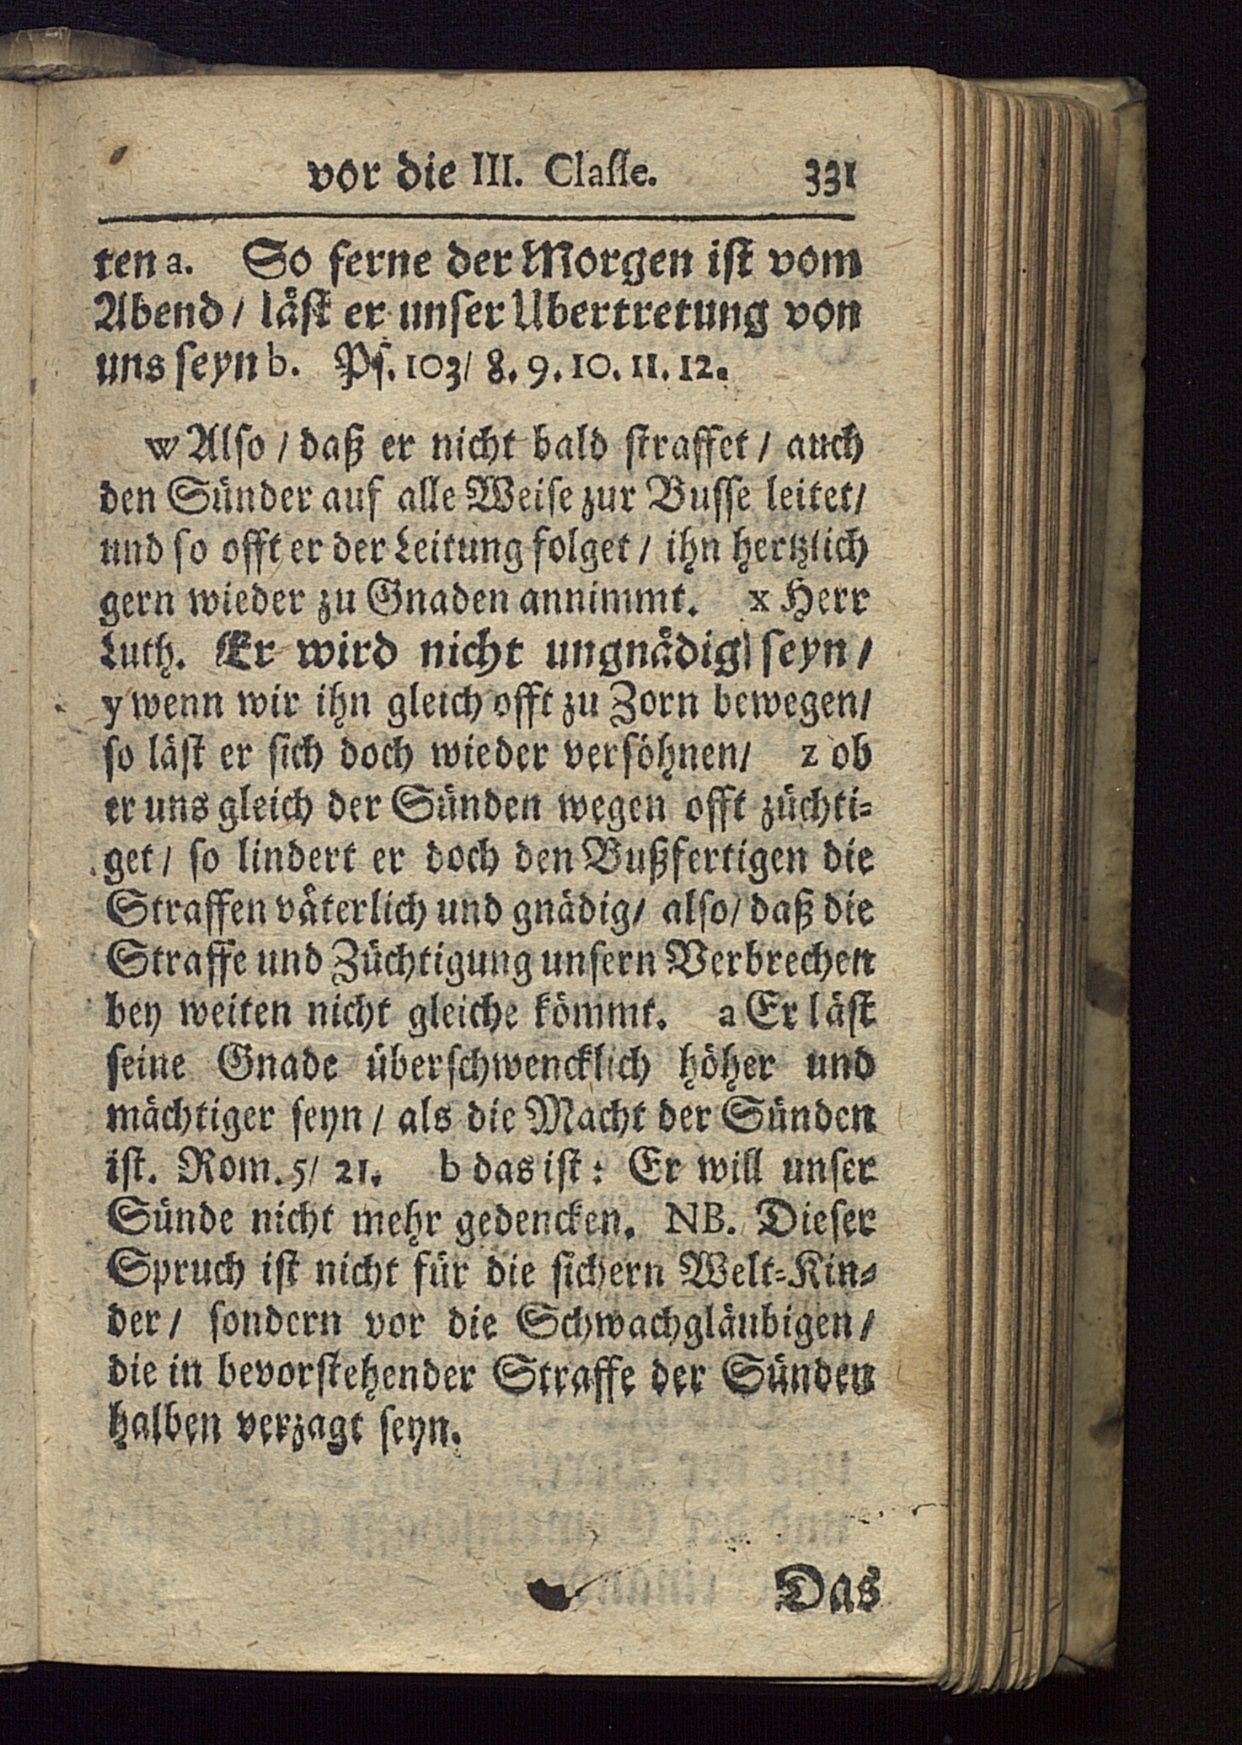 vor die III. Classe. 331
ten a. So ferne der Morgen ist vom
Abend / läst er unser Ubertretung von
uns seyn b. Ps. 103/ 8. 9. 10. 11. 12.
w Also / daß er nicht bald straffet / auch
den Sünder auf alle Weise zur Busse leitet/
und so offt er der Leitung folget / ihn hertzlich
gern wieder zu Gnaden annimmt. x Herr
Luth. Er wird nicht ungnädig seyn /
y wenn wir ihn gleich offt zu Zorn bewegen/
so läst er sich doch wieder versöhnen/ z ob
er uns gleich der Sünden wegen offt züchti-
get / so lindert er doch den Bußfertigen die
Straffen väterlich und gnädig/ also/ daß die
Straffe und Züchtigung unsern Verbrechen
bey weiten nicht gleiche kömmt. a Er läst
seine Gnade überschwencklich höher und
mächtiger seyn / als die Macht der Sünden
ist. Rom. 5/ 21. b das ist: Er will unser
Sünde nicht mehr gedencken. NB. Dieser
Spruch ist nicht für die sichern Welt-Kin-
der / sondern vor die Schwachgläubigen /
die in bevorstehender Straffe der Sünden
halben verzagt seyn.
Das